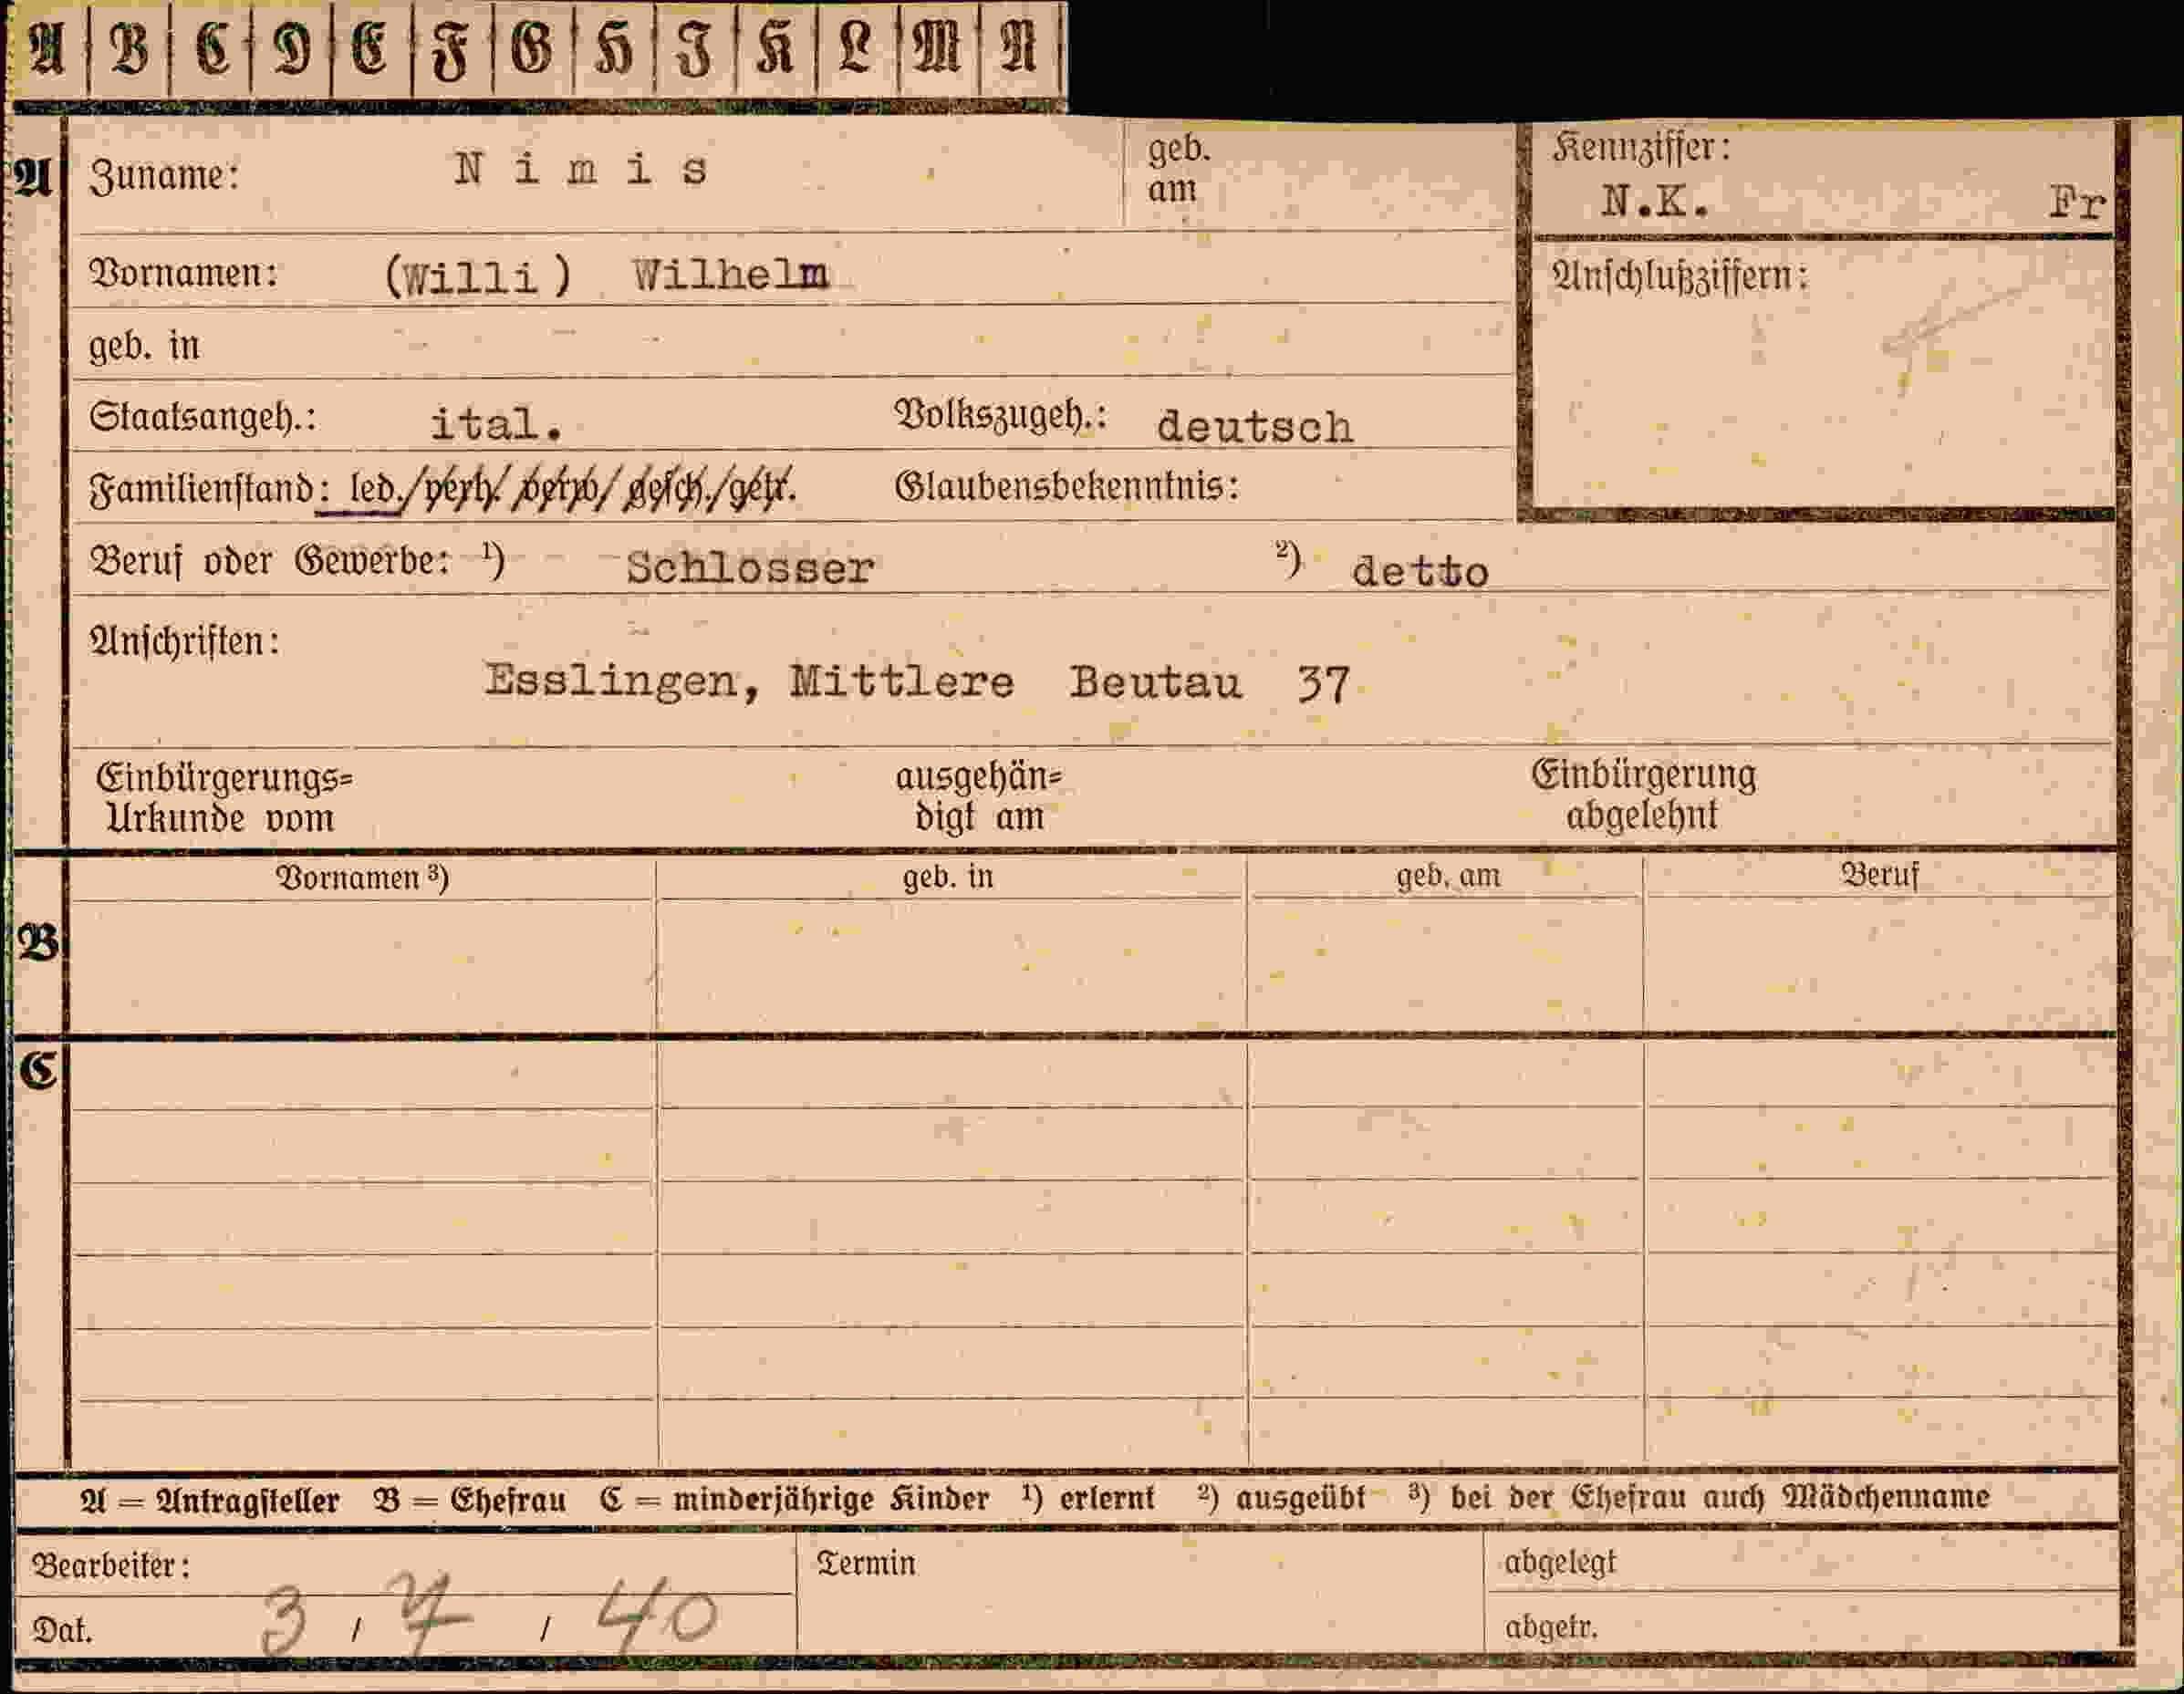 A B C D E F G H I K L M N
A Zuname: Nimis geb. am
Kennziffer:
N.K. Fr
Vornamen: (Willi) Wilhelm
Anschlußziffern:
geb. in
Staatsangeh.: ital. Volkszugeh.: deutsch
Familienstand: led./verh./verw./gesch./getr. Glaubensbekenntnis:
Beruf oder Gewerbe: ¹) Schlosser ²) detto
Anschriften:
Esslingen, Mittlere Beutau 37
Einbürgerungs= ausgehän= Einbürgerung
Urkunde vom digt am abgelehnt
Vornamen ³) geb. in geb. am Beruf
B
C
A = Antragsteller B = Ehefrau C = minderjährige Kinder ¹) erlernt ²) ausgeübt ³) bei der Ehefrau auch Mädchenname
Bearbeiter: Termin abgelegt
Dat. 3 / 7 / 40 abgetr.